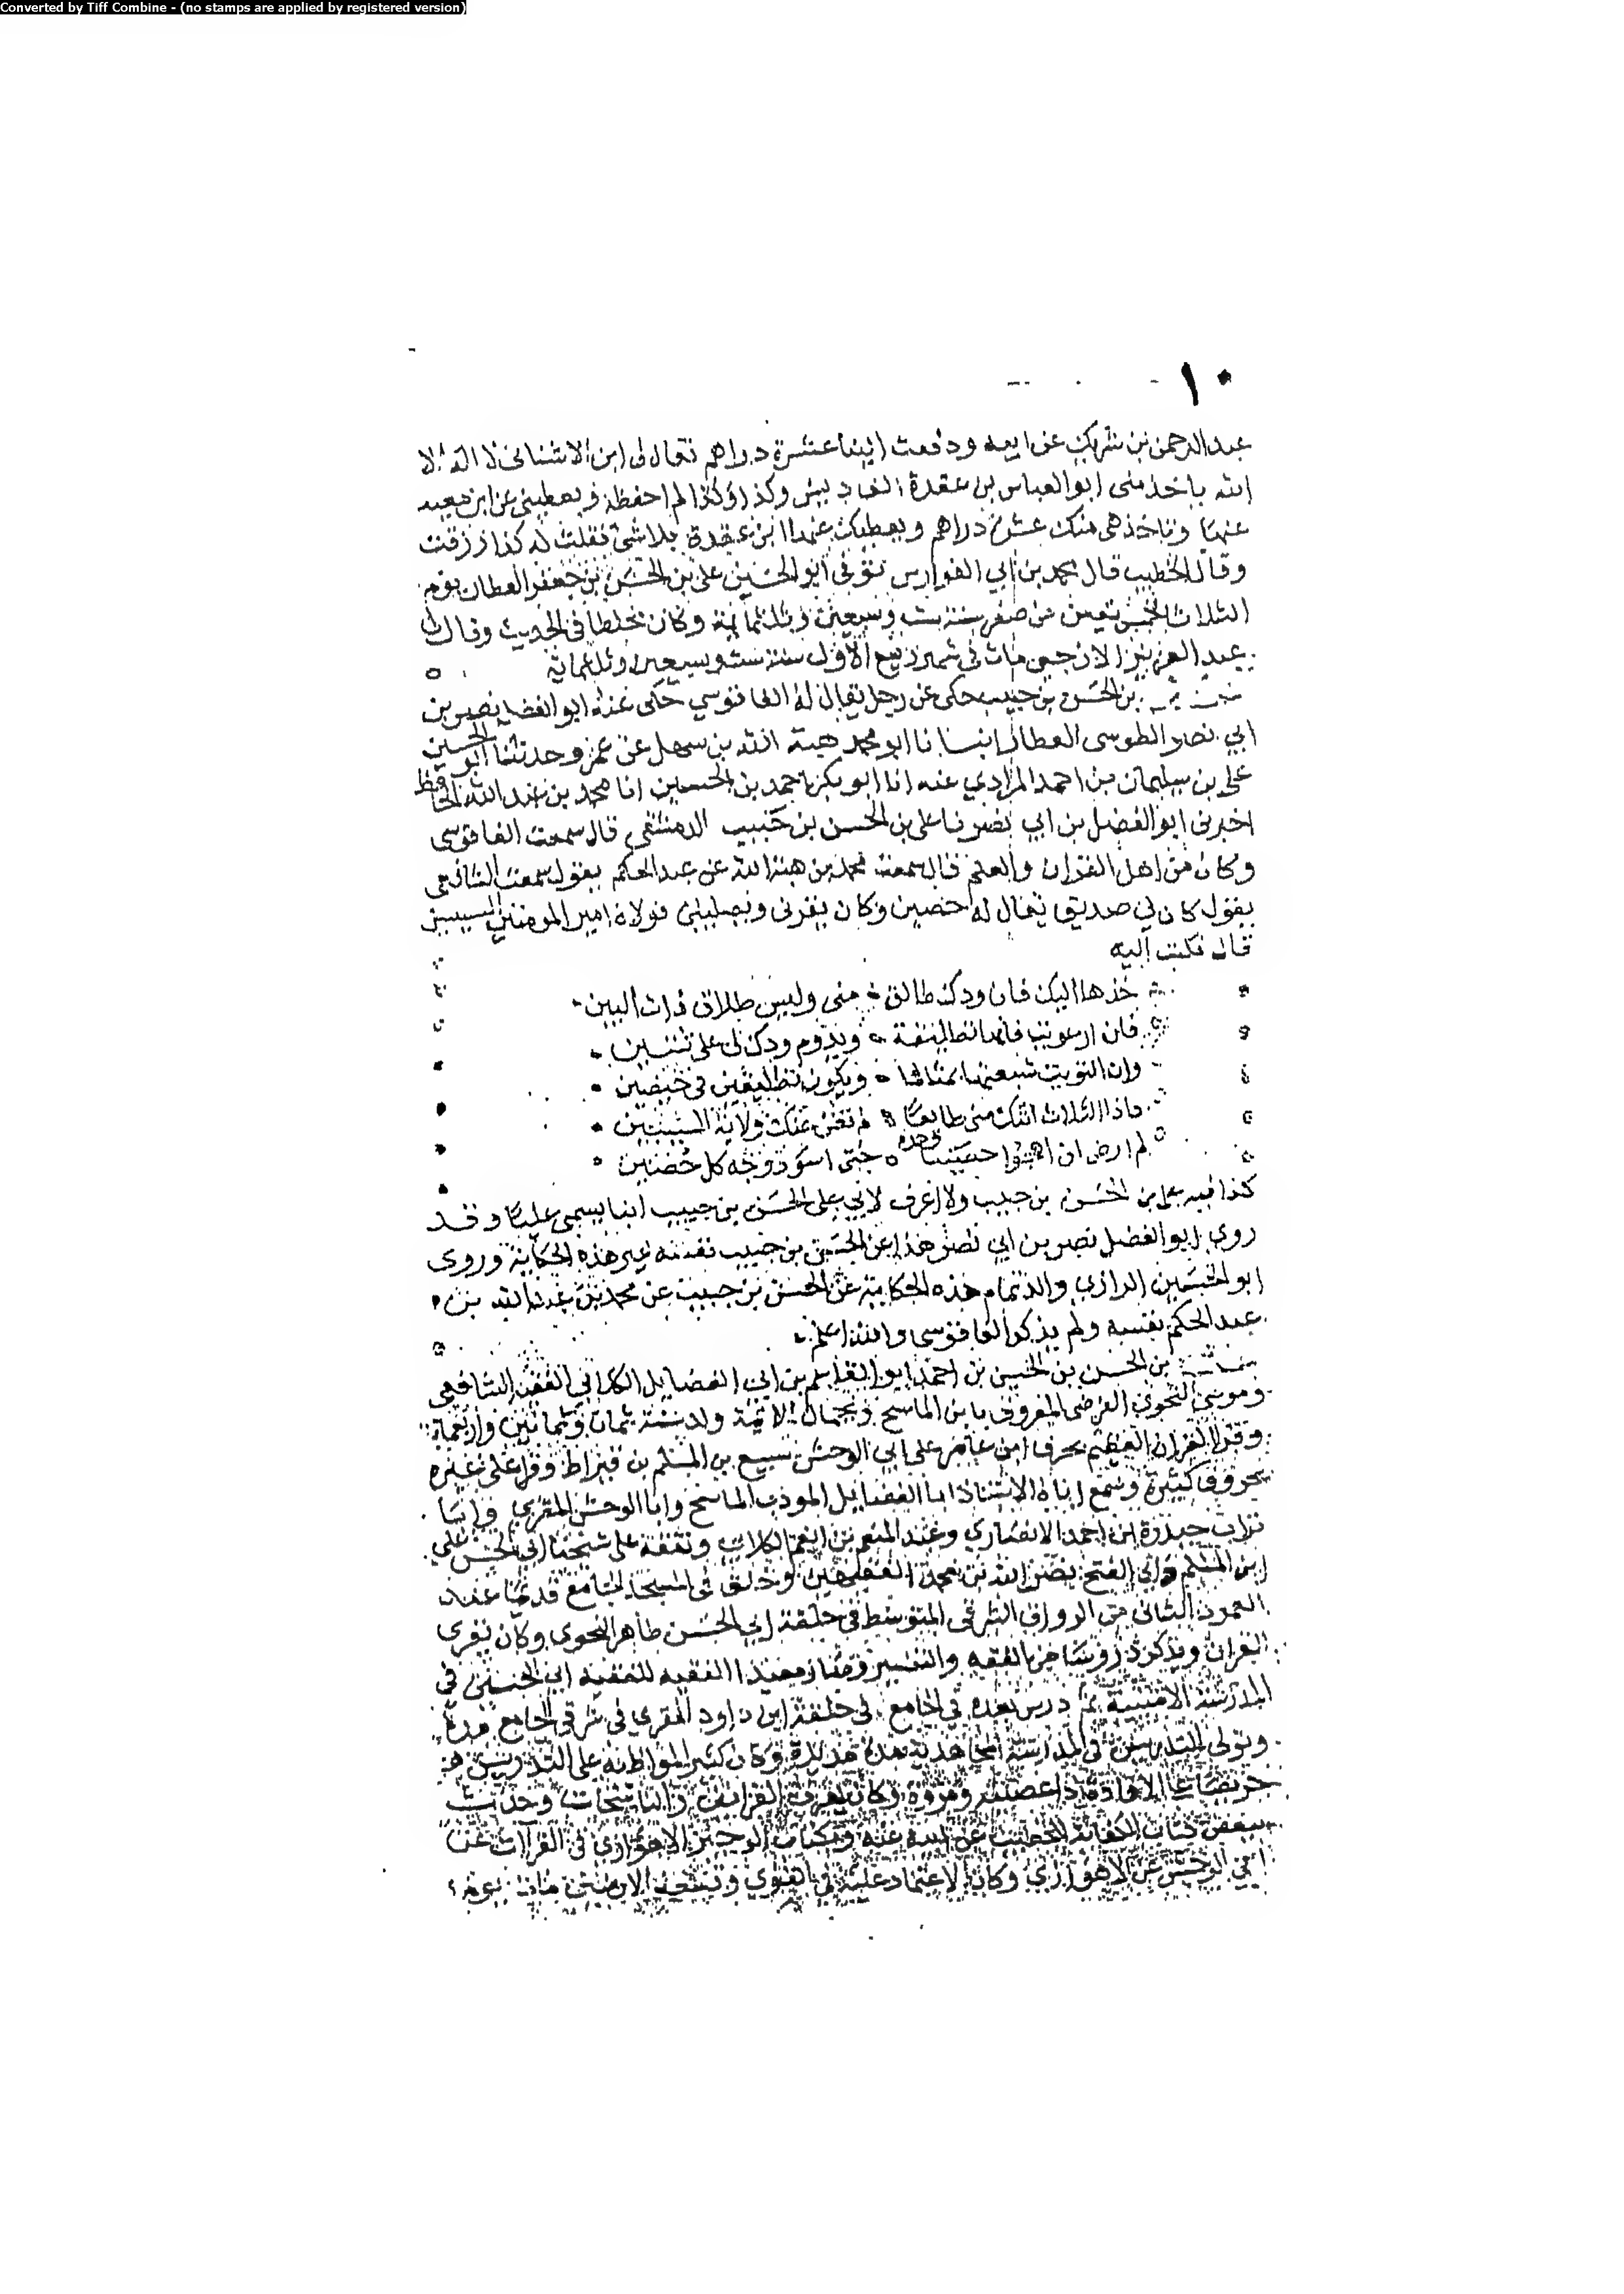 Converted by Tiff Combine - (no stamps are applied by registered version)
١٠
عبد الرحمن بن شريك عن ابيه ودفعت الينا عشرة دراهم تعال لى ابن الاشنانى لا اله الا
الله ياخذ منى ابو العباس بن عقدة وكذا وكذا لم احفظه ويعطينى عن ابن سعيد
عنها وتاخذ هى منك عشرة دراهم ويعطيك عنه ابن عقدة بلا شى فقلت له كذا رزقت
وقال الخطيب قال محمد بن ابي الفوارس توفى ابو الحسين على بن الحسن بن جعفر العطار يوم
الثلاث لخمس بقين من صفر سنة ست وسبعين وثلثمائة وكان مخلطا فى الحديث وقال لى
عبد العزيز الازجى مات فى شهر ربيع الاول سنة ست وسبعين وثلثمائة
بن الحسن بن حبيب حكى عن رجل يقال له الفافوسي حكى عنه ابو الفضل نصر بن
ابي نصر الطوسى العطار انبانا ابو محمد هبة الله بن سهل عن عمر وحدثنا ابو الحسين
على بن سليمان بن احمد المرادي عنه انا ابو بكر احمد بن الحسين انا محمد بن عبد الله الحافظ
اخبرنى ابو الفضل بن ابي نصر نا على بن الحسن بن حبيب الدمشقى قال سمعت الفافوسى
وكان من اهل القران والعلم قال سمعت محمد بن عبد الله عن عبد الحكم يقول سمعت الشافعى
يقول كان لي صديق يقال له حصين وكان يقرنى ويصلينى فولاه امير المومنين السيبين
قال فكتبت اليه
خذها اليك فان ودك طالق منى وليس طلاق ذات البين
فان ارعويت فانها تطليقة ويدوم ودك لى على ثنتين
وان التويت شفعتها بمثالها ويكون تطليقين فى حيضين
فاذا الثلاث اتتك منى طايعا لم تغن عنك ولاية السيبين
لم ارض ان اهجوا حصينا وحده حتى اسود وجه كل حصين
كذا فيه على بن الحسن بن حبيب ولا اعرف لابي على الحسن بن حبيب ابنا يسمى عليا وقد
روى ابو الفضل نصر بن ابي نصر هذا عن الحسن بن حبيب نفسه غير هذه الحكاية وروى
ابو الحسين الرازي والد تمام هذه الحكاية عن الحسن بن حبيب عن محمد بن عبد الله بن
عبد الحكم نفسه ولم يذكر الفافوسى والله اعلم
بن الحسن بن الحسن بن احمد ابو القاسم بن ابى الفضايل الكلابي الفقيه الشافعى
النحوي الفرضى المعروف بابن الماسح وبجمال الائمة ولد سنة ثمان وثمانين واربعماية
وقرا القران العظيم بحرف ابن عامر على ابي الوحش سبيع بن المسلم بن قيراط وقرا على غيره
بحروف كثيرة وسمع اباه الاستاذ ابا الفضايل المودب الماسح وابا الوحش المقري وابا
تراب حيدرة ابن احمد الانصاري وعبد المنعم بن الغمر الكلابي وتفقه على شيخنا ابى الحسن على
ابن المسلم وابى الفتح نصر الله بن محمد الفقيهين وحلق فى المسجد الجامع قديما عند
العمود الثانى من الرواق الشرقى المتوسط فى حلقة ابي الحسن طاهر النحوى وكان يقرى
القران ويذكر دروسا من الفقه والتفسير وصار معيدا للفقيه ابى الحسن فى
المدرسة الامينية ثم درس بعده في الجامع فى حلقة ابن داود المقري فى شرقى الجامع مدة
وتولى التدريس فى المدرسة المجاهدية مدة مديدة وكان كثير المواظبة على التدريس
حريصا على الافادة ذا عصبية ومروة وكان يعرف الفرايض والمناسخات وحدث
ببعض كتاب الكفاية للخطيب عن ابيه عنه وبكتاب الوجيز الاهوازى فى القرآت عن
ابي الوحش عن الاهوازي وكان الاعتماد عليه فى الفتوي وقسمة الارضين مات يوم